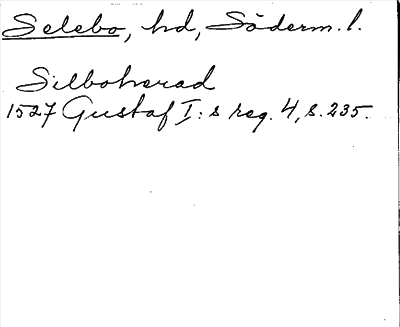 Selebo, hd, Söderm. l.
Silboherad
1527 Gustaf I:s reg. 4, s. 235.